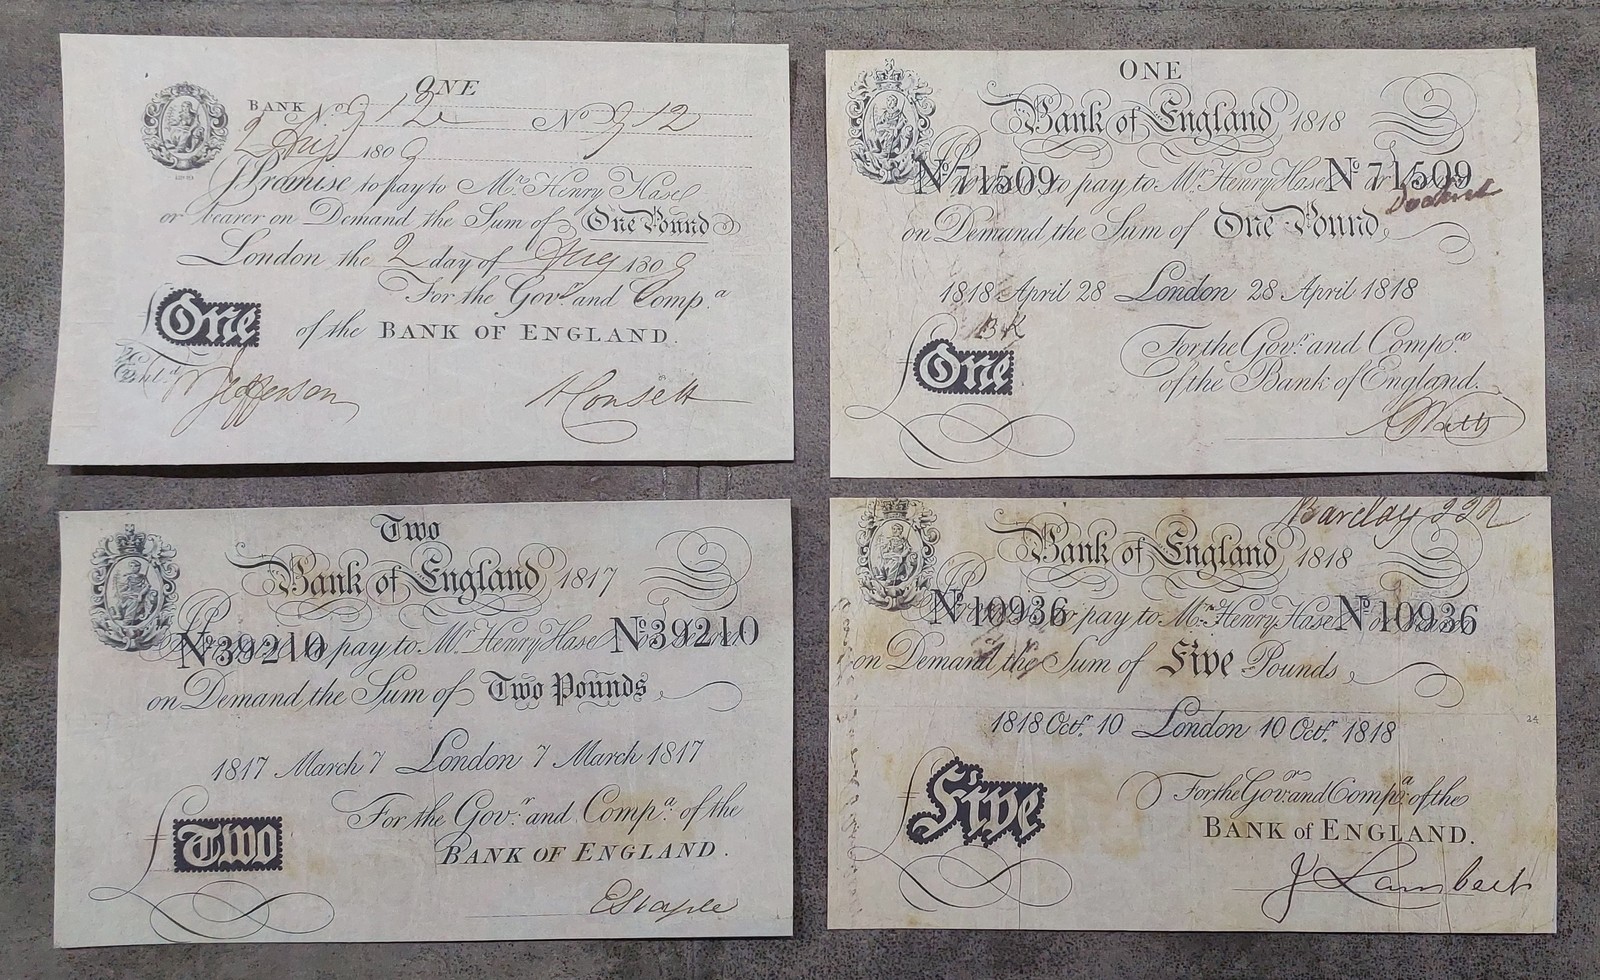 ONE
BANK No 912 No 912
2 Aug 1809
I Promise to pay to Mr. Henry Hase
or bearer on Demand the Sum of One Pound
London the 2 day of Aug 1809
For the Govr. and Compa.
of the BANK OF ENGLAND.
£ One
Jefferson
H Consett
ONE
Bank of England 1818
No 71509 to pay to Mr. Henry Hase No 71509
on Demand the Sum of One Pound
1818 April 28 London 28 April 1818
BK
£ One
For the Govr. and Compa.
of the Bank of England.
Watts
Two
Bank of England 1817
No 39210 pay to Mr. Henry Hase No 39210
on Demand the Sum of Two Pounds
1817 March 7 London 7 March 1817
£ Two
For the Govr. and Compa. of the
BANK OF ENGLAND.
Barclay 222
Bank of England 1818
No 10936 to pay to Mr. Henry Hase No 10936
on Demand the Sum of Five Pounds
14
1818 Octr. 10 London 10 Octr. 1818
£ Five
For the Govr. and Compa. of the
BANK of ENGLAND.
J Lambert